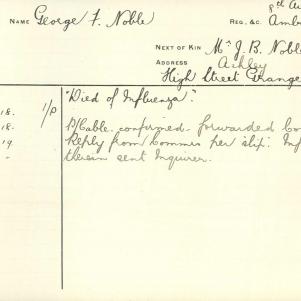 8th Au
NAME George F. Noble REG., &C. Amb
NEXT OF KIN Mr J. B. Noble
ADDRESS Ashley
High Street Grange
18. 1/P "Died of Influenza".
18. P/Cable confirmed forwarded Co
19 Reply from Commns per slip. Inf
- therein sent Inquirer.